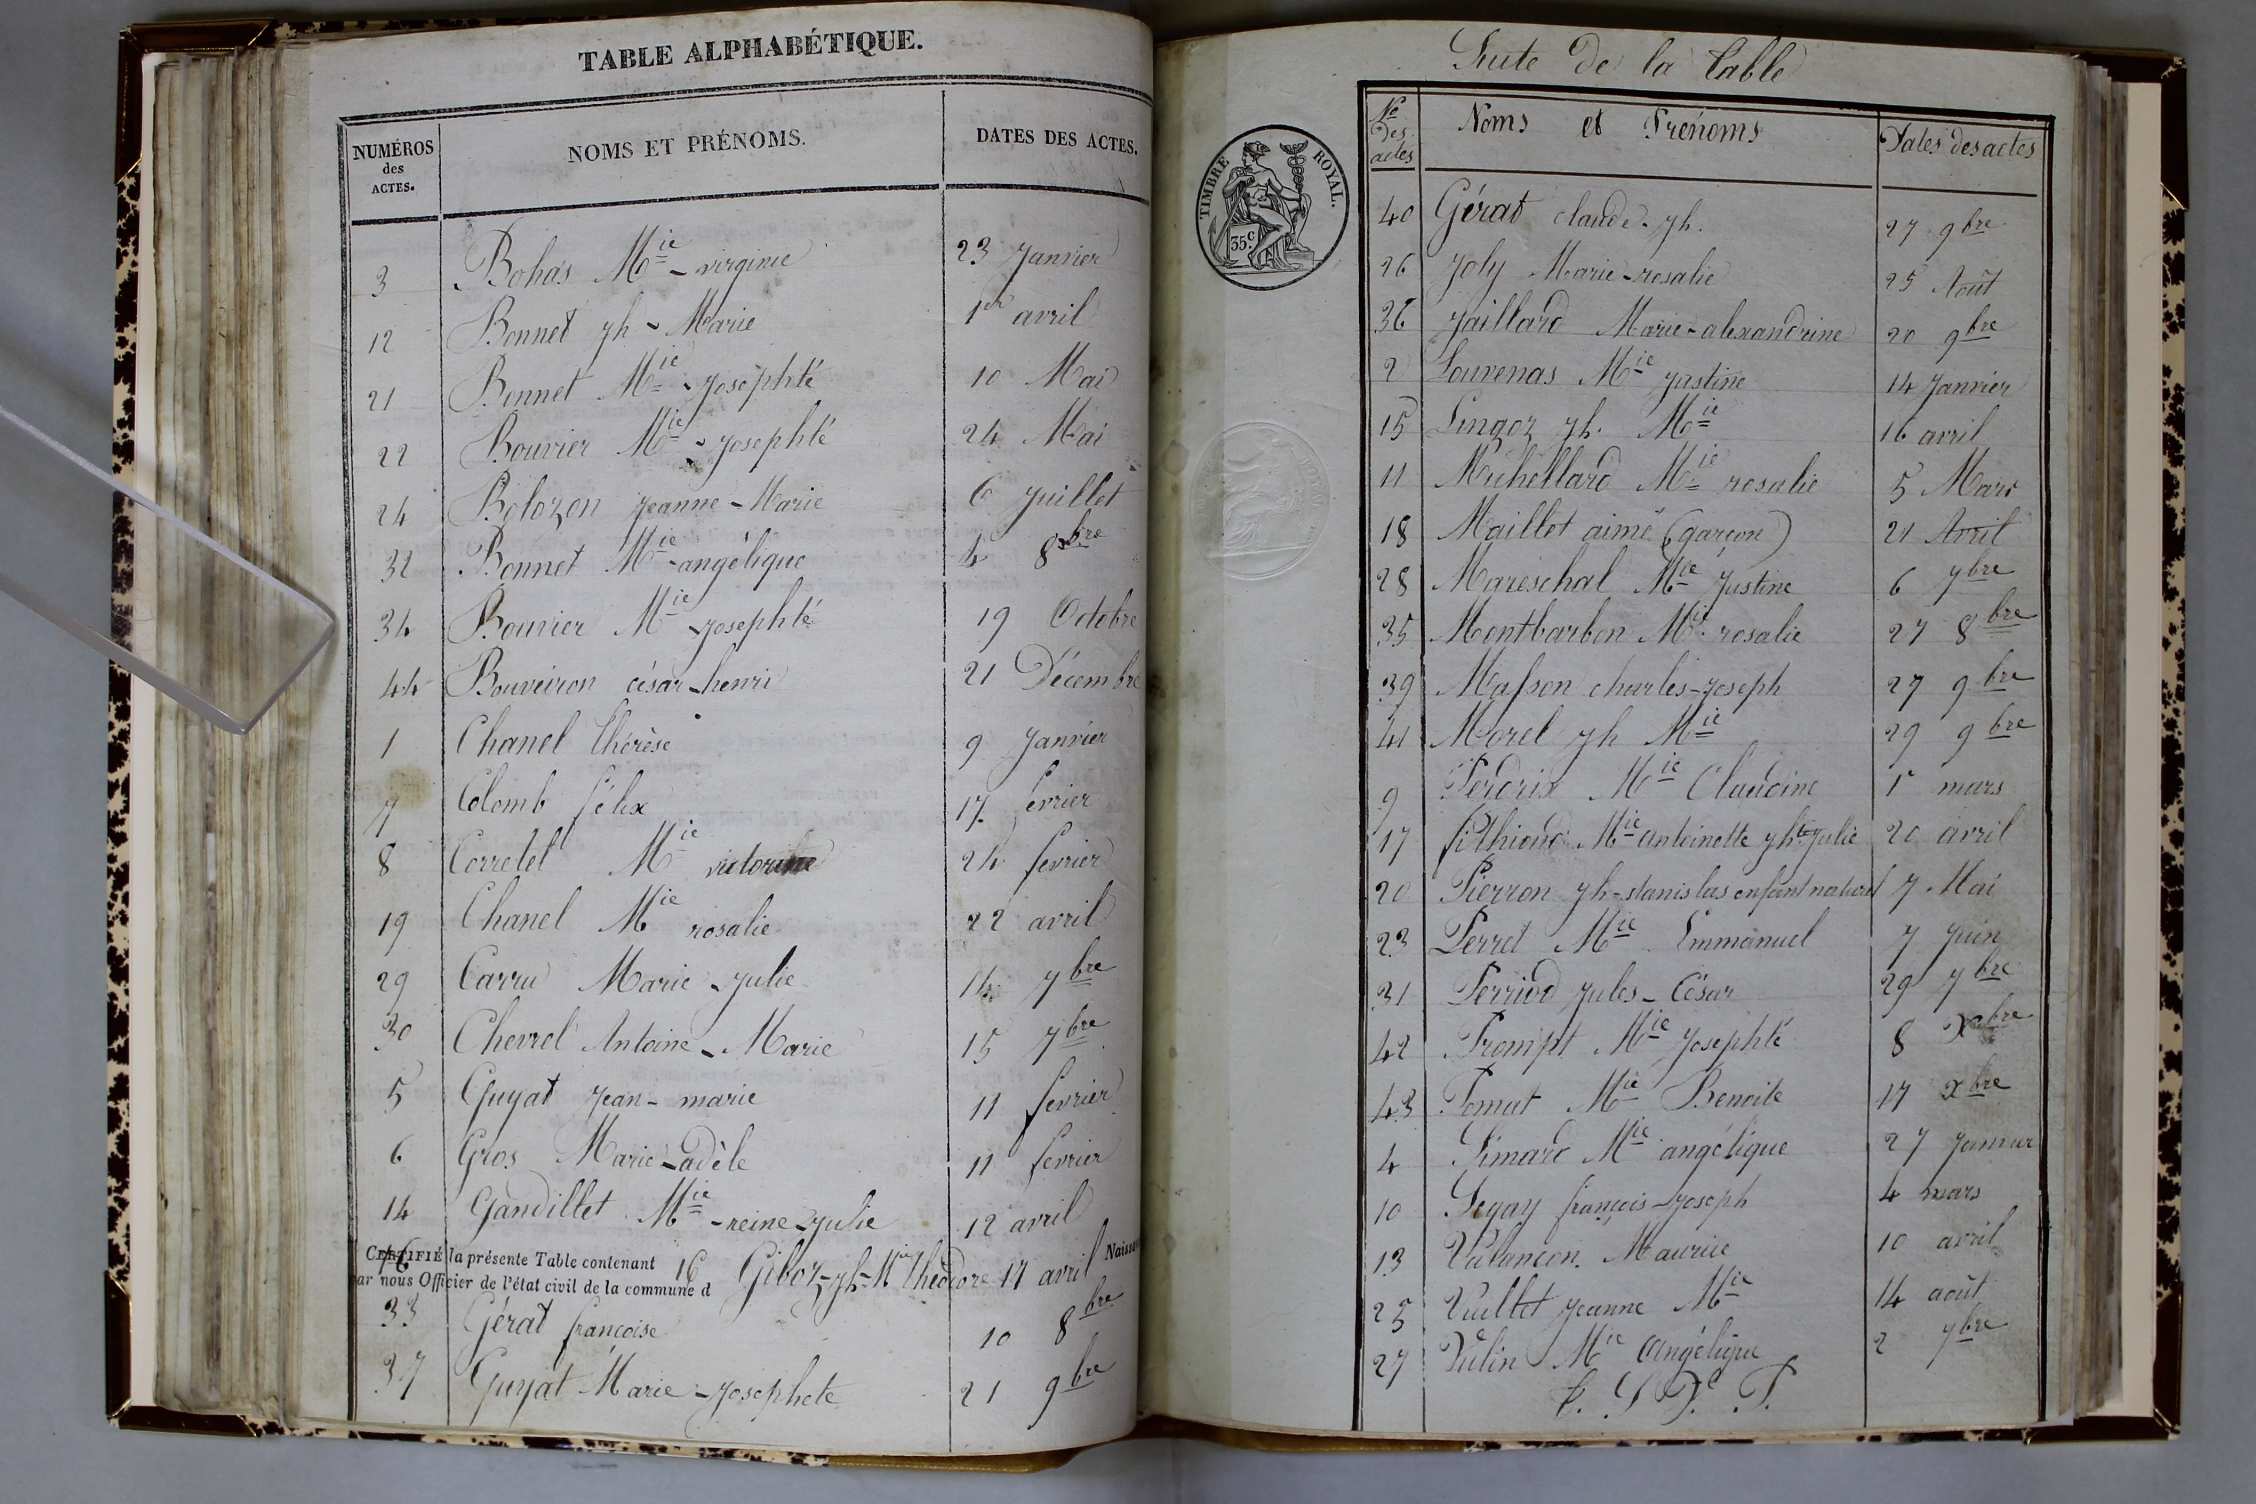 TABLE ALPHABÉTIQUE.
NUMÉROS des ACTES. NOMS ET PRÉNOMS. DATES DES ACTES.
3 Bohas Mie - virginie 23 Janvier
12 Bonnet jh - Marie 1er avril
21 Bonnet Mie - Josephté 10 Mai
22 Bouvier Mie - Josephté 24 Mai
24 Bolozon Jeanne - Marie 6 Juillet
32 Bonnet Mie - angélique 4 8bre
34 Bouvier Mie - Josephté 19 Octobre
44 Bouveiron césar - henri 21 Décembre
1 Chanel thérèse 9 Janvier
7 Colomb félix 17 fevrier
8 Corretel Mie victorine 24 fevrier
19 Chanel Mie rosalie 22 avril
29 Carru Marie - Julie 14 7bre
30 Chevrel Antoine - Marie 15 7bre
5 Guyat Jean - marie 11 fevrier
6 Gros Marie - adèle 11 fevrier
14 Gandillet Mie - reine - Julie 12 avril
CERTIFIÉ la présente Table contenant
16 Giboz - jh - Mie théodore 17 avril
par nous Officier de l'état civil de la commune d
33 Gérat françoise 10 8bre
37 Guyat Marie - Josephete 21 9bre
Suite De la Table
No Des actes Noms et Prénoms Dates des actes
TIMBRE ROYAL.
35c.
40 Gérat claude - jh. 27 9bre
26 Joly Marie - rosalie 25 Août
36 Jaillard Marie - alexandrine 20 9bre
2 Louvenas Mie Justine 14 Janvier
15 Lingoz jh. Mie 16 avril
11 Michellard Mie rosalie 5 Mars
18 Maillet aimé (garçon) 21 Avril
28 Mareschal Mie Justine 6 7bre
35 Montbarbon Mie rosalie 27 8bre
39 Masson charles - Joseph 27 9bre
41 Morel jh Mie 29 9bre
9 Perdrix Mie Claudine 1r mars
17 Mie antoinette jhte Julie 20 avril
20 Pierron jh - stanislas enfant naturel 7 Mai
23 Perret Mie Emmanuel 7 Juin
31 Perriod Jules - César 29 7bre
42 Prompt Mie Josephté 8 Xbre
43 Pomat Mie Benoite 17 xbre
4 Simard Mie angélique 27 Janvier
10 Segay françois - Joseph 4 mars
13 Valançon Maurice 10 avril
25 Vuillet Jeanne Mie 14 août
27 Vulin Mie Angélique 2 7bre